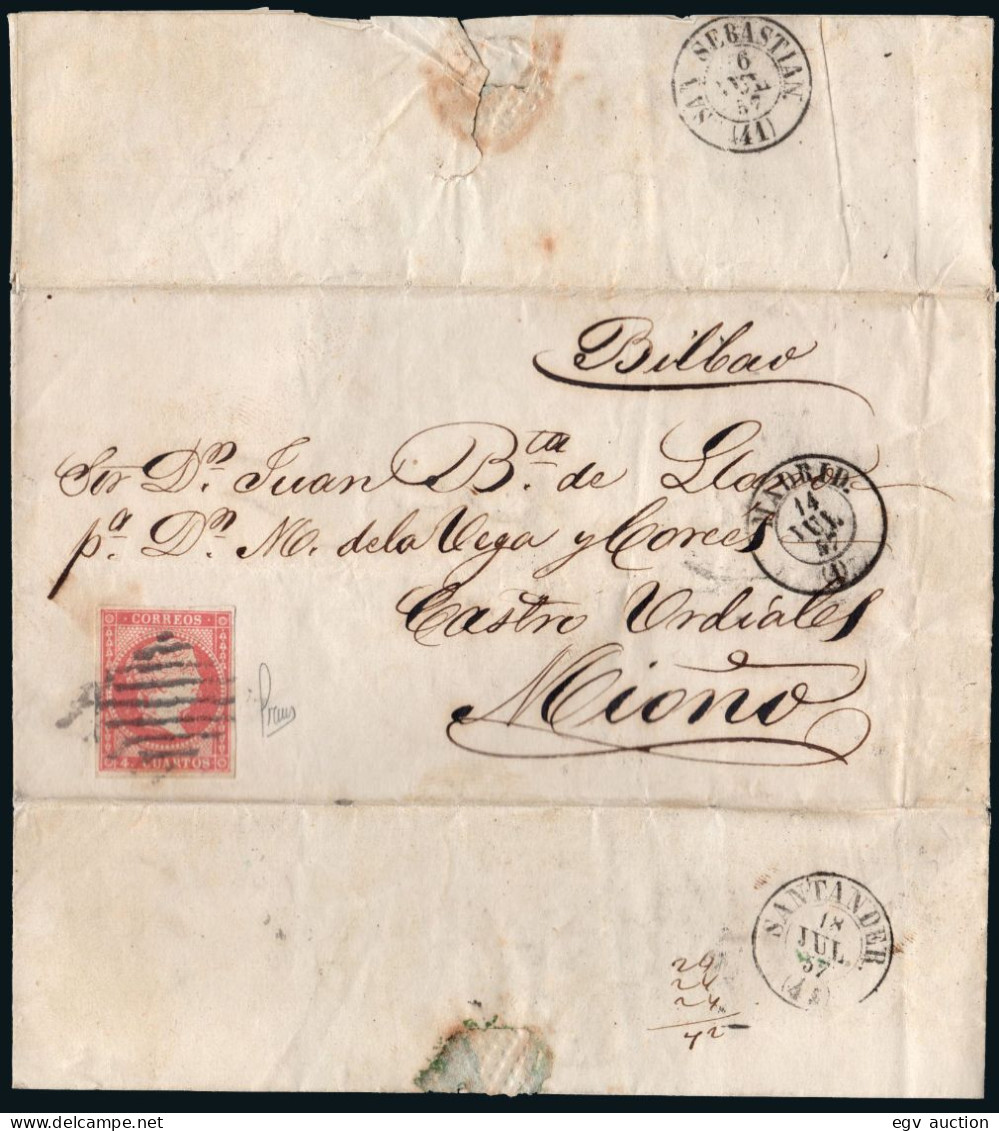 SAN SEBASTIAN
6
JUL
57
(41)
Bilbao
Sor Dn. Juan Bta. de
pa. Dn. M. de la Vega y Corces
MADRID.
14
JUL
57
(1)
Castro Urdiales
CORREOS
4 CUARTOS
Mioño
SANTANDER
18
JUL.
57
24
24
72
egv auction